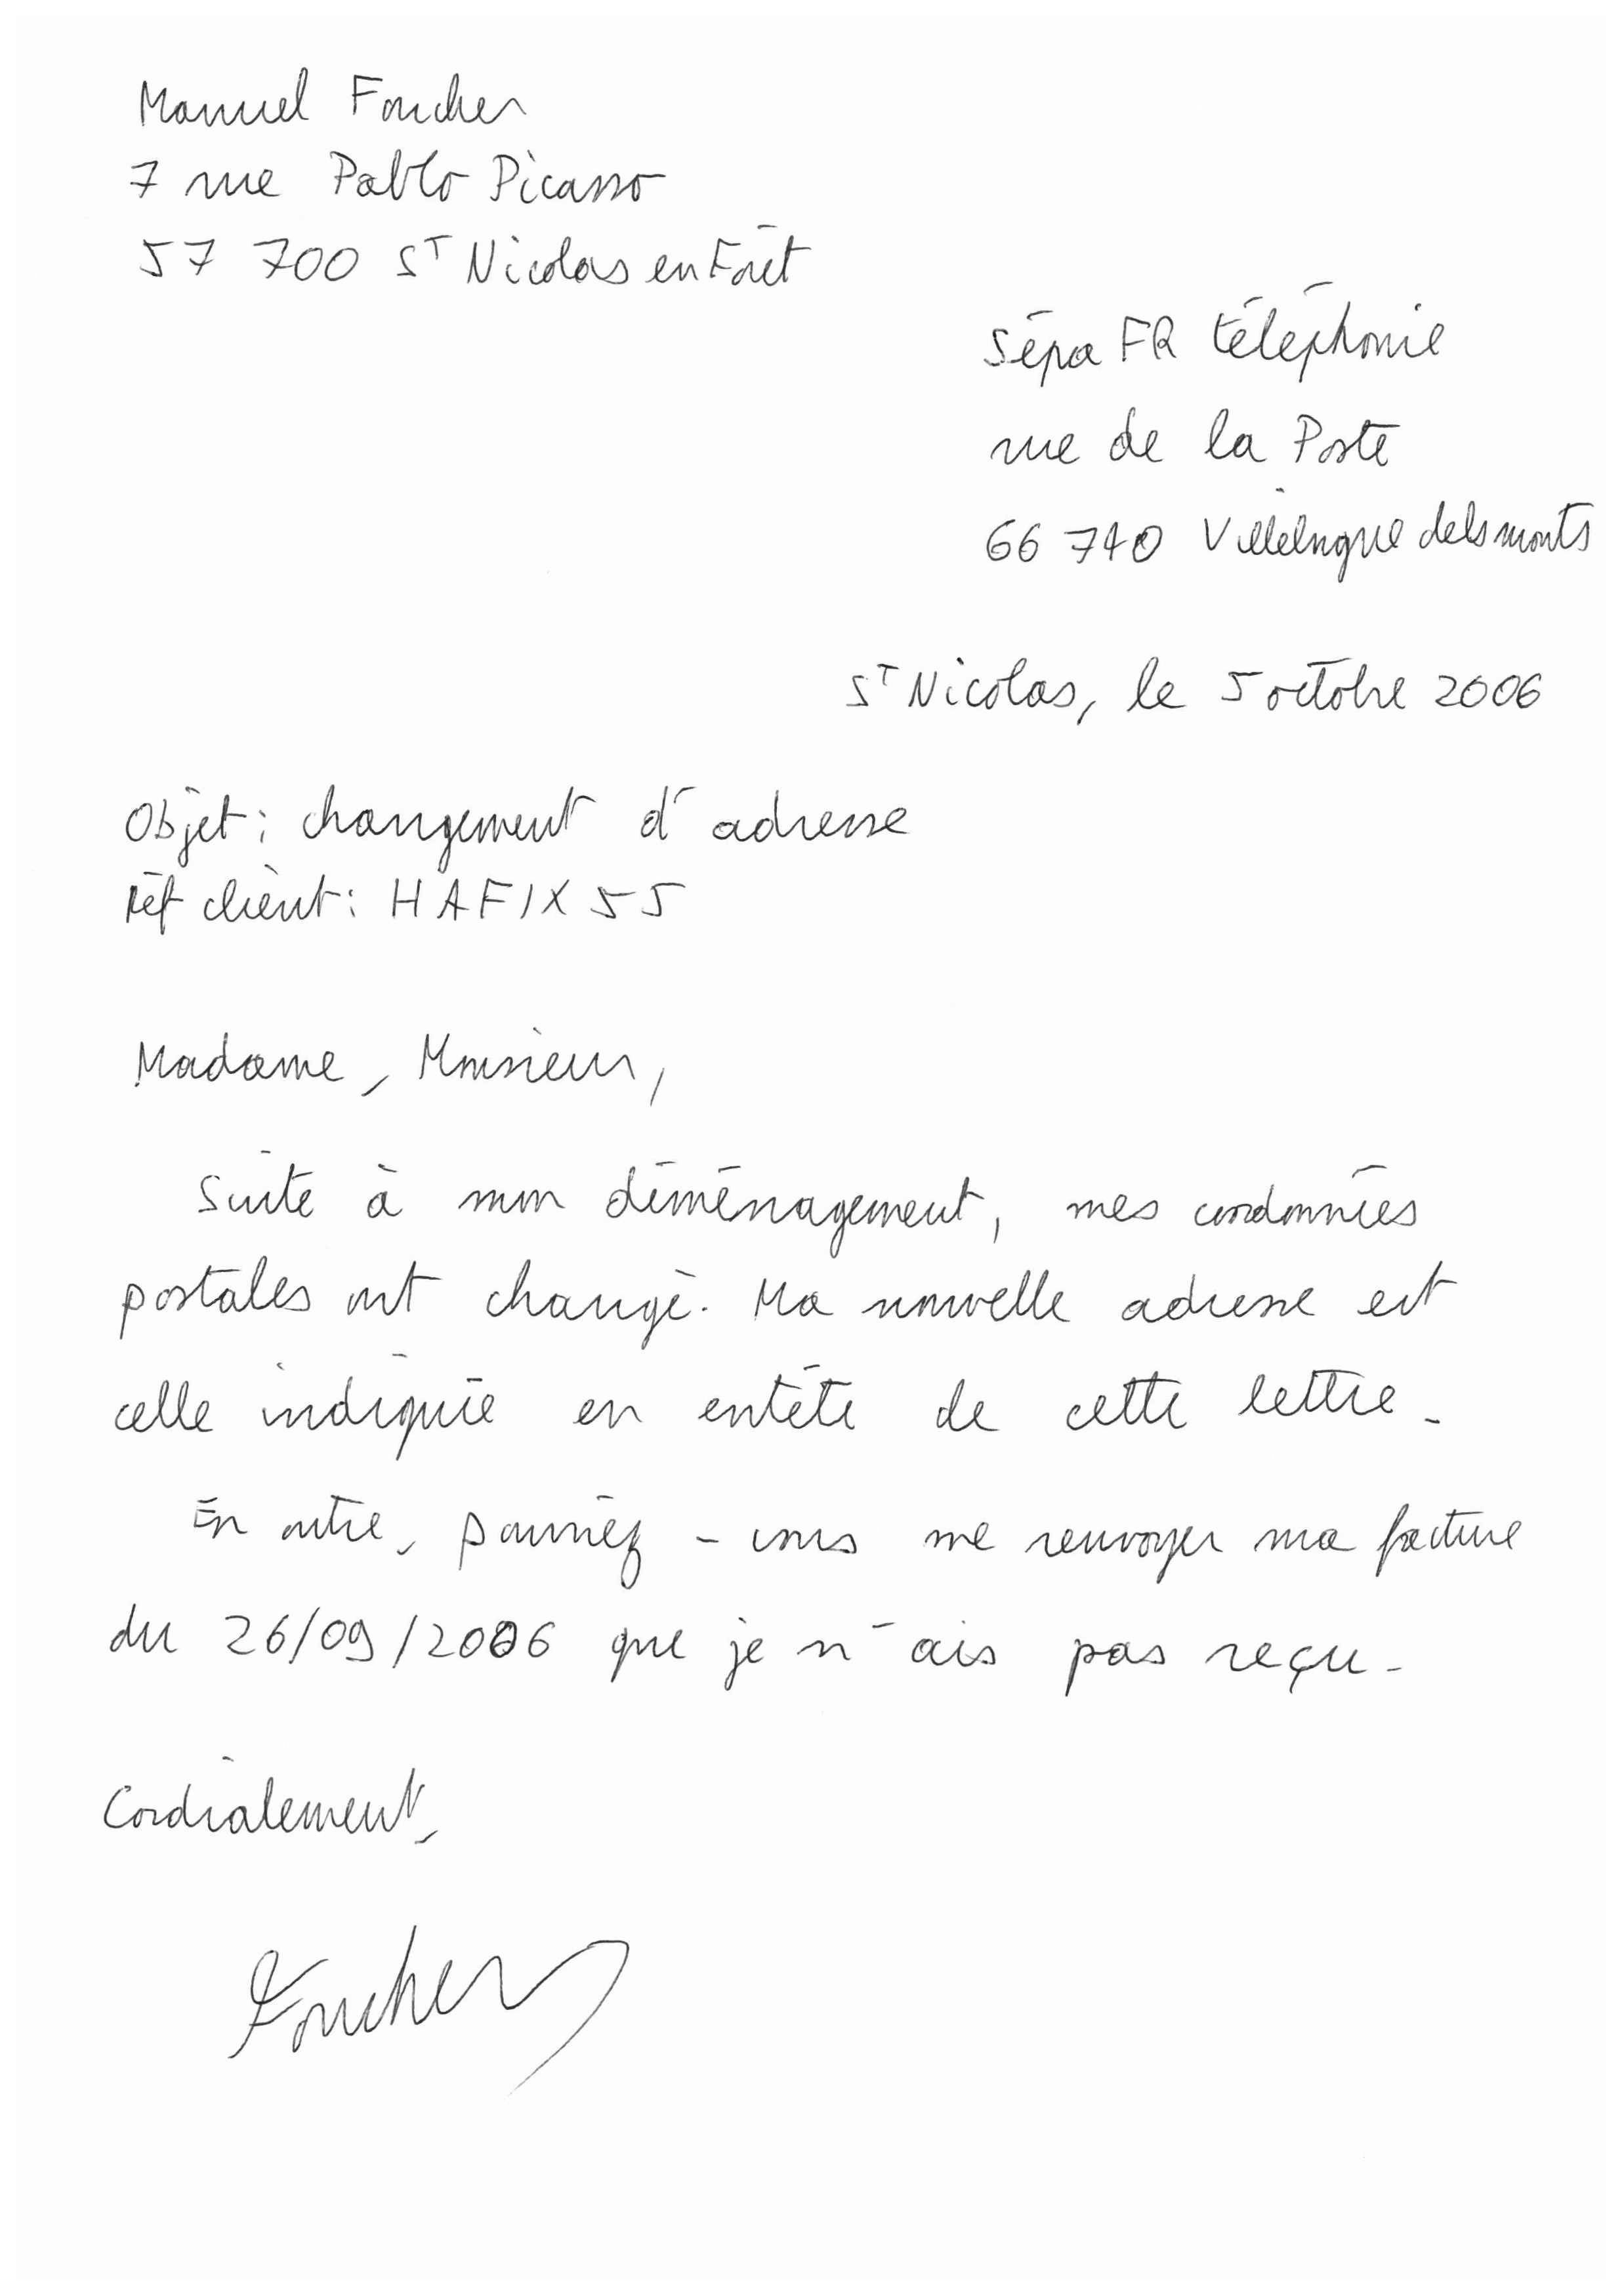 Manuel Foucher
7 rue Pablo Picasso
57 700 ST Nicolas en Forêt
Sépa FR téléphonie
rue de la Poste
66 740 Villelngue dels monts
ST Nicolas, le 5 octobre 2006
Objet : changement d'adresse
Réf client : HAFIX55
Madame, Monsieur,
Suite à mon déménagement, mes coordonnées
postales ont changé. Ma nouvelle adresse est
celle indiquée en entête de cette lettre.
En outre, pourriez-vous me renvoyer ma facture
du 26/09/2006 que je n'ais pas reçu.
Cordialement,
Foucher